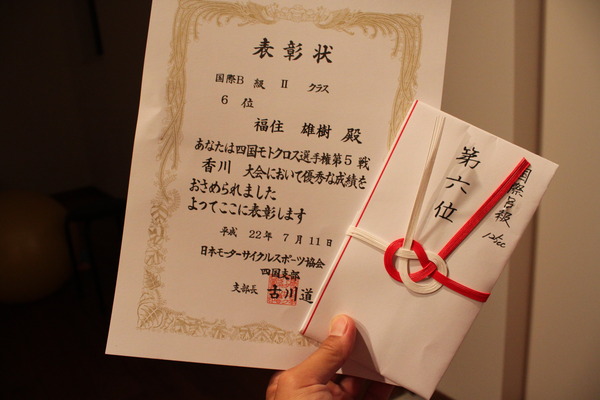 表彰状
国際B 級 II クラス
6 位
福住 雄樹 殿
あなたは四国モトクロス選手権第5戦
香川 大会において優秀な成績を
おさめられました
よってここに表彰します
平成 22年 7月 11日
日本モーターサイクルスポーツ協会
四国支部
支部長 古川道
第六位
国際B級
125cc